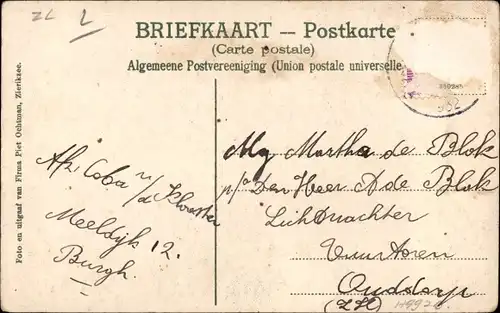 ZL
BRIEFKAART -- Postkarte
(Carte postale)
Algemeene Postvereeniging (Union postale universelle
Foto en uitgaaf van Firma Piet Ochtman, Zierikzee.
Afz. Coba v/d Klooster
Meeldijk 12.
Burgh.
Mej Martha de Blok
p/a Den Heer A de Blok
Lichtwachter
Vuurtoren
Ouddorp
(ZH)